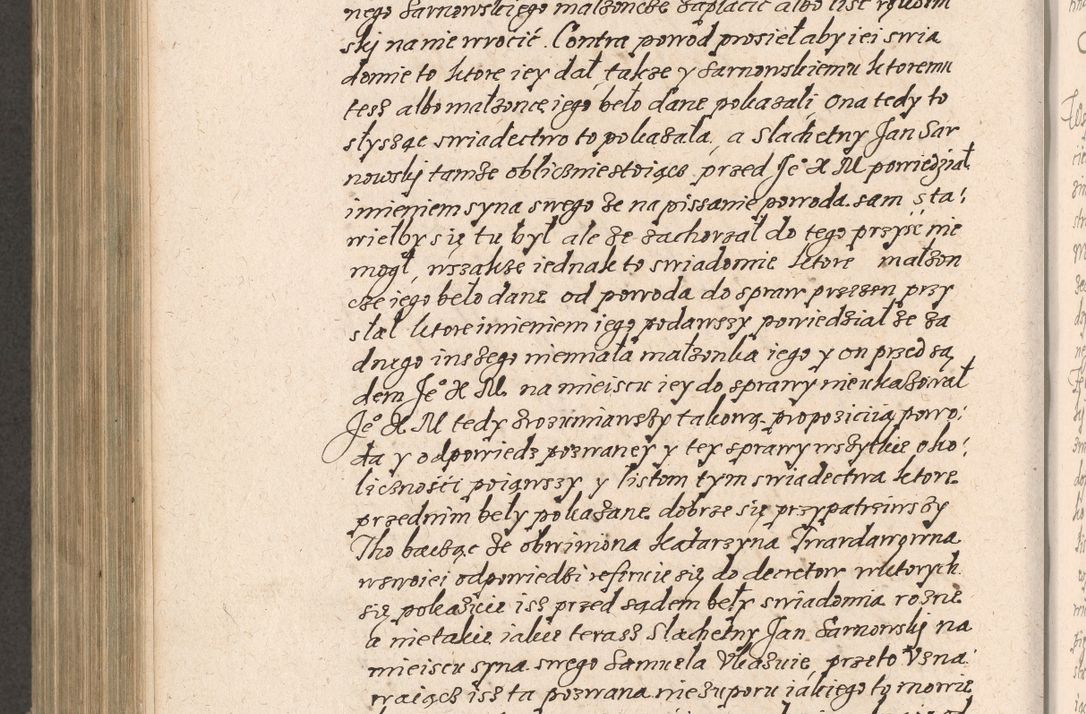 nego Sarnowskiego małżonce zapłacić albo list
ski na nie wrocić. Contra powod prosieł aby iei swia
domie to ktore iey dał, także y Sarnowskiemu ktoremu
tesz albo małżonce iego beło dane pokazali, Ona tedy to
słysząc swiadectwo to pokazała, a Slachetny Jan Sar
nowskj tamże obliczniestoiącz przed Je° X M powiedział
imieniem syna swego że na pissanie powoda sam sta:
wiełby się tu był ale że zachorzał do tego przyść nie
mogł, wszakże iednak to swiadomie ktore małżon
cze iego beło dane od powoda do spraw przezen przy
słał ktore imieniem iego podawszy powiedział że ża
dnego inszego niemiała małżonka iego y on przed są
dem Je° X M. na mieiscu iey do sprawy nie ukazował
Je° X M tedy zrozumiawszy takową proposicią powo:
da y odpowiedz pozwaney y tey sprawy wszytkie oko:
liczności poiąwszy y listom tym swiadectwa ktore
przednim beły pokazane dobrze się przypatrziwszy
Tho bacząc że obwiniona Katarzyna Twardawowna
wswoiei odpowiedzi refiruie się do decretow wktorych
się pokazuie isz przed sądem beły swiadomia rozne
a nie takie iakie terasz Slachetny Jan Sarnowskj na
mieiscu syna swego Samuela Ukazuię, przeto Uzna
waiącz isz ta pozwana nie zuporu iakiego to mowie